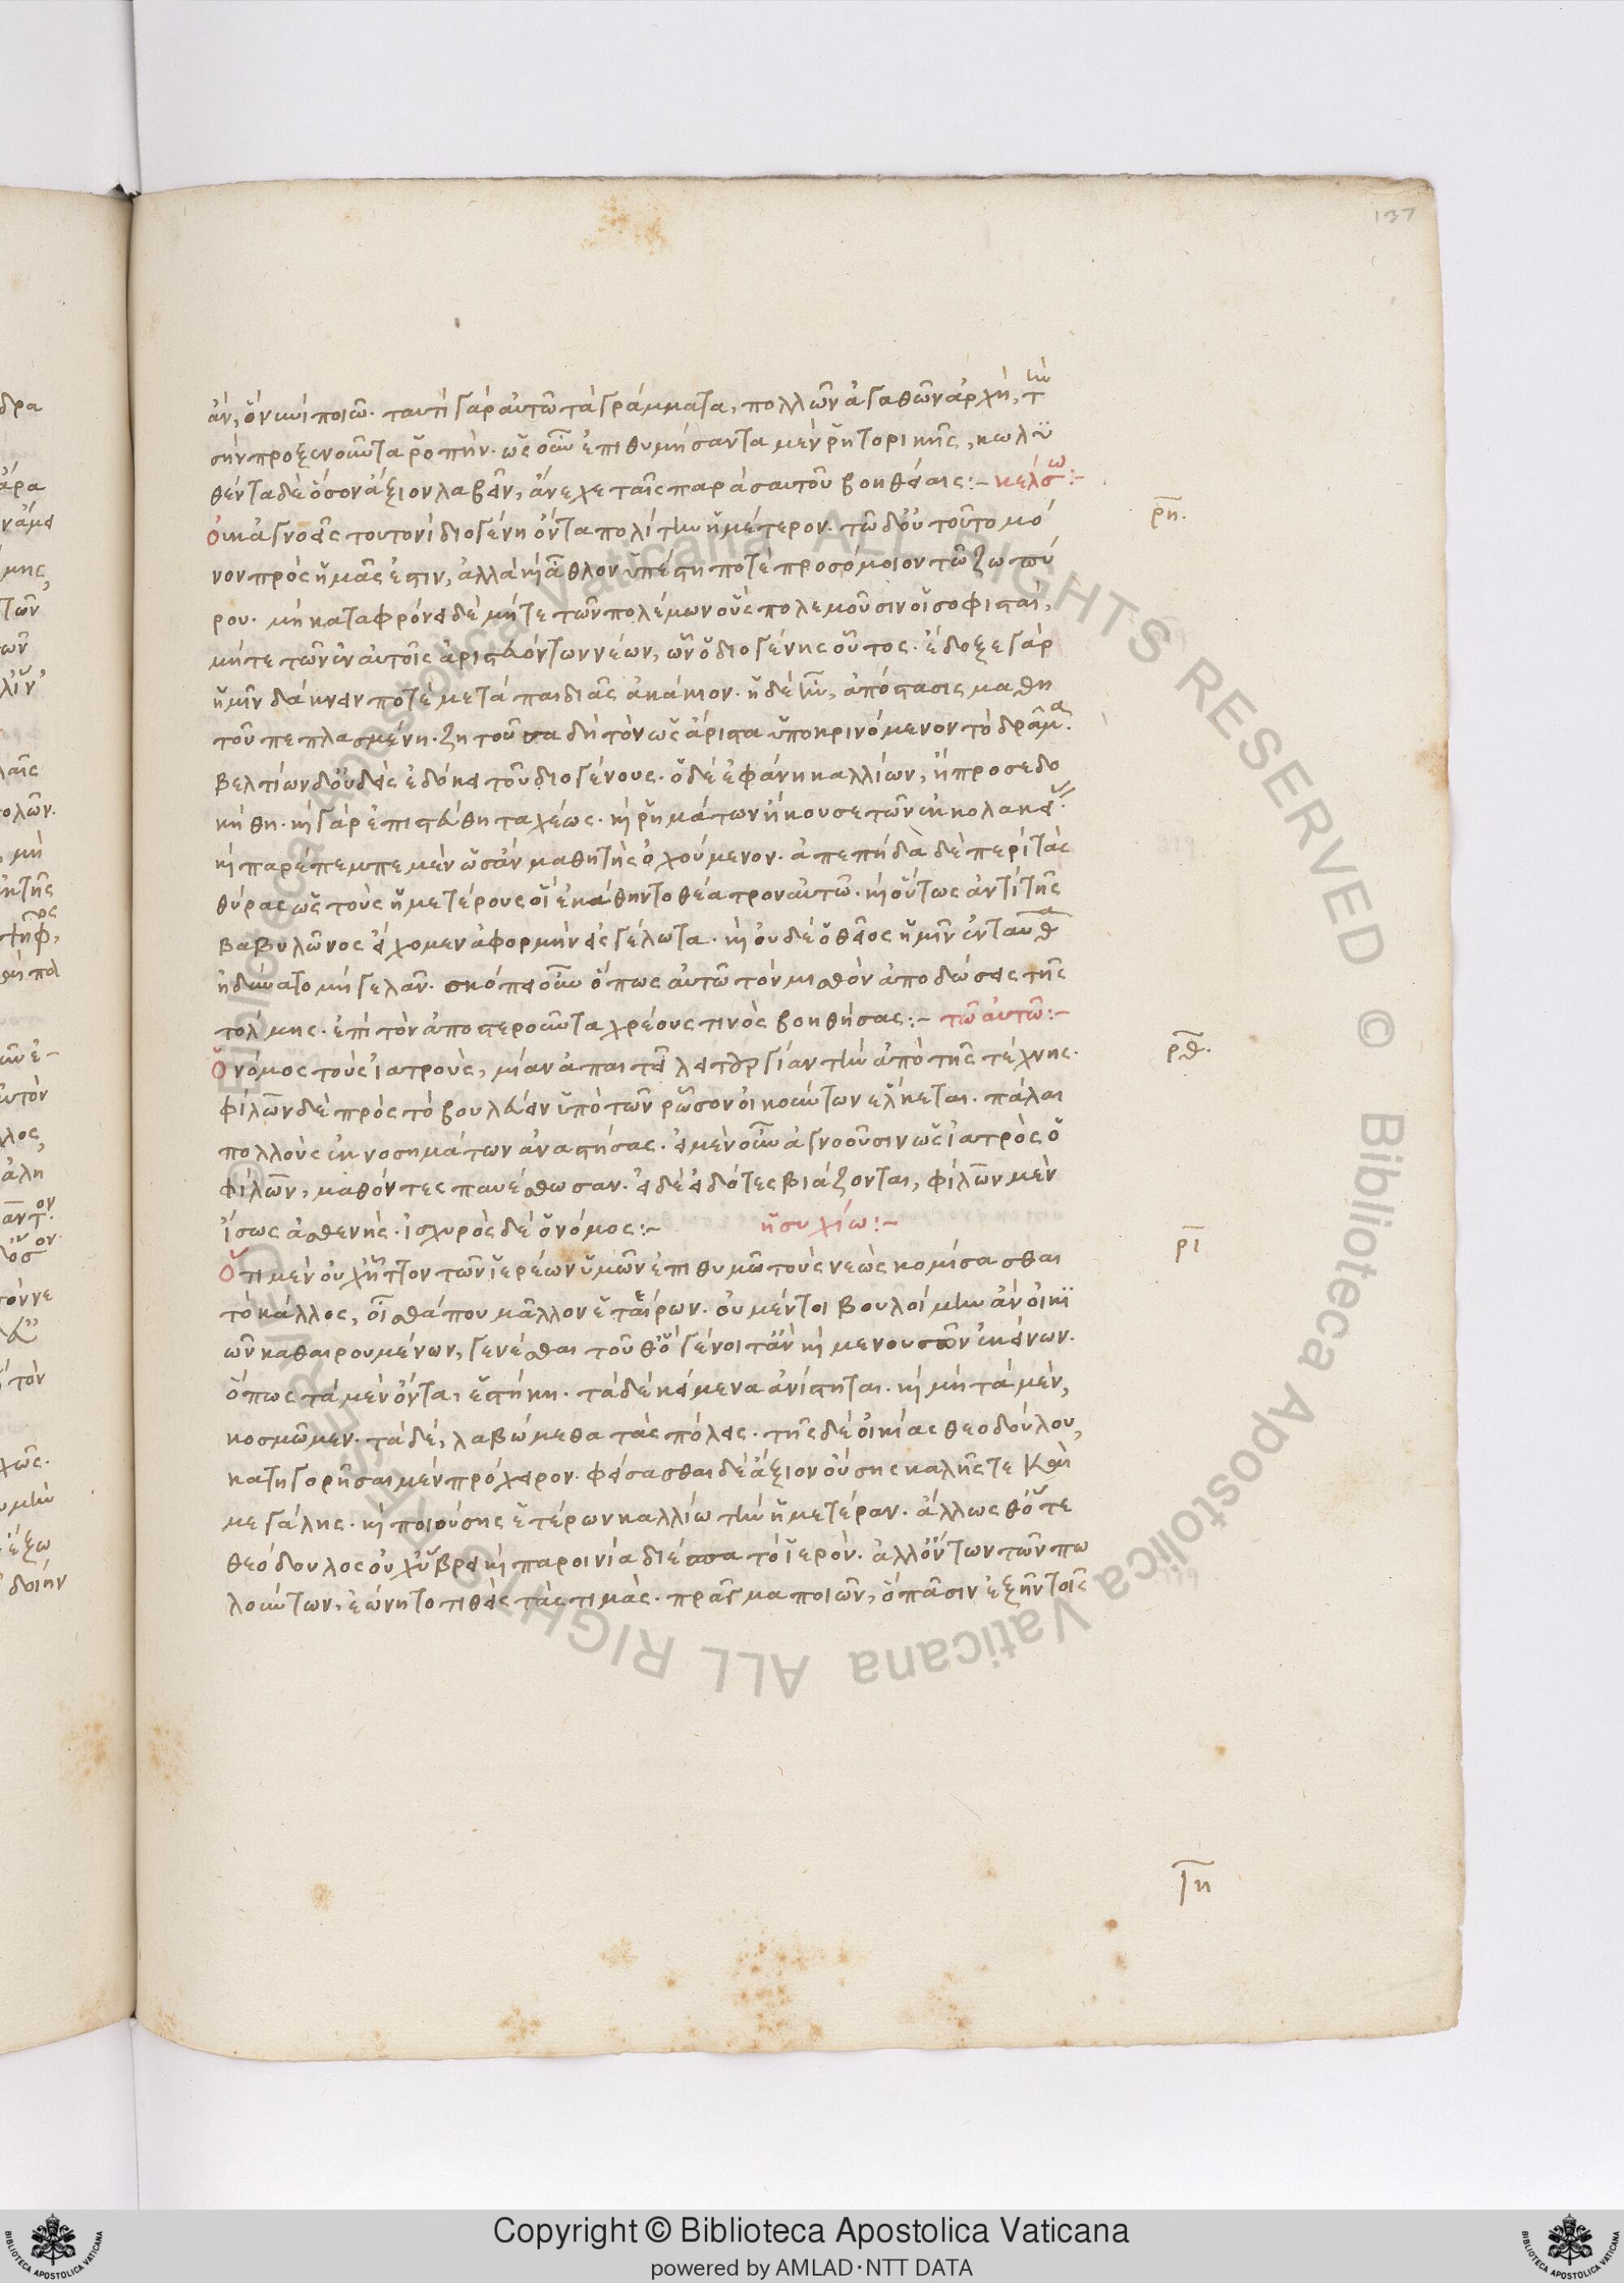 137
ἂν, ὃν κινεῖ ποιῶ. ταυτὶ γὰρ αὐτῶ τὰ γράμματα, πολλῶν ἀγαθῶν ἀρχὴ, τὴν
σὴν προξενοῦντα ῥοπήν. ὡς οὖν ἐπιθυμήσαντα μὲν ῥητορικῆς, κωλυ
θέντα δὲ ὅσον ἄξιον λαβεῖν, ἄνεχε ταῖς παρὰ σαυτοῦ βοηθείαις:– κέλσω:–
Οὐκ ἀγνοεῖς τουτονὶ διογένη ὄντα πολίτην ἡμέτερον. τῶ δ' οὐ τοῦτο μό
ρη.
νον πρὸς ἡμᾶς ἐστιν, ἀλλὰ καὶ ἆθλον ὑπέστη ποτὲ προσόμοιον τῶ ζωπύ
ρου. μὴ καταφρόνει δὲ μήτε τῶν πολέμων οὓς πολεμοῦσιν οἱ σοφισταὶ,
μήτε τῶν ἐν αὐτοῖς ἀριστευόντων νέων, ὧν ὁ διογένης οὗτος. ἔδοξε γὰρ
ἡμῖν δάκνειν ποτὲ μετὰ παιδιᾶς ἀκάκιον. ἡ δὲ ἦν, ἀπόστασις μαθη
τοῦ πεπλασμένη. ζητοῦσα δὴ τὸν ὡς ἄριστα ὑποκρινόμενον τὸ δρᾶμα.
βελτίων δ' οὐδεὶς ἐδόκει τοῦ διογένους. ὁ δὲ ἐφάνη καλλίων, ἢ προσεδο
κήθη. καὶ γὰρ ἐπιστεύθη ταχέως. καὶ ῥημάτων ἤκουσε τῶν ἐκ κολακείας.
καὶ παρέπεμπε μὲν ὡς ἂν μαθητὴς ὀχούμενον. ἀπεπήδα δὲ περὶ τὰς
θύρας ὡς τοὺς ἡμετέρους οἳ ἐκάθηντο θέατρον αὐτῶ. καὶ οὕτως ἀντὶ τῆς
βαβυλῶνος εἴχομεν ἀφορμὴν εἰς γέλωτα. καὶ οὐδὲ ὁ θεῖος ἡμῖν ἐνταῦθα
ἠδύνατο μὴ γελᾶν. σκόπει οὖν ὅπως αὐτῶ τὸν μισθὸν ἀποδώσεις τῆς
τόλμης. ἐπὶ τὸν ἀποστεροῦντα χρέους τινὸς βοηθήσας:– τῶ αὐτῶ:–
Ὁ νόμος τοὺς ἰατροὺς, μίαν ἀπαιτεῖ λειτουργίαν τὴν ἀπὸ τῆς τέχνης.
ρθ.
φίλων δὲ πρὸς τὸ βουλεύειν ὑπὸ τῶν ῥῶσον οἰκούντων ἕλκεται. πάλαι
πολλοὺς ἐκ νοσημάτων ἀναστήσας. εἰ μὲν οὖν ἀγνοοῦσιν ὡς ἰατρὸς ὁ
φίλων, μαθόντες παυέσθωσαν. εἰ δὲ εἰδότες βιάζονται, φίλων μὲν
ἴσως ἀσθενής. ἰσχυρὸς δὲ ὁ νόμος:– ἡσυχίω:–
ρι
Ὅτι μὲν οὐχ ἧττον τῶν ἱερέων ὑμῶν ἐπιθυμῶ τοὺς νεὼς κομίσασθαι
τὸ κάλλος, οἶσθά που μᾶλλον ἑταίρων. οὐ μέντοι βουλοίμην ἂν οἰκι
ῶν καθαιρουμένων, γενέσθαι τοῦθ' ὃ γένοιτ' ἂν καὶ μενουσῶν ἐκείνων.
ὅπως τὰ μὲν ὄντα, ἑστήκη. τὰ δὲ κείμενα ἀνίστηται. καὶ μὴ τὰ μὲν,
κοσμῶμεν. τὰ δὲ, λαβώμεθα τὰς πόλεις. τῆς δὲ οἰκίας θεοδούλου,
κατηγορῆσαι μὲν πρόχειρον. φείσασθαι δὲ ἄξιον οὔσης καλῆς τε καὶ
μεγάλης. καὶ ποιούσης ἑτέρων καλλίω τὴν ἡμετέραν. ἄλλως θ' ὅτε
θεόδουλος οὐχ ὕβρει καὶ παροινία διέσπα τὸ ἱερόν. ἀλλ' ὄντων τῶν πω
λούντων, ἐώνητο τιθεὶς τὰς τιμάς. πρᾶγμα ποιῶν, ὃ πᾶσιν ἐξῆν τοῖς